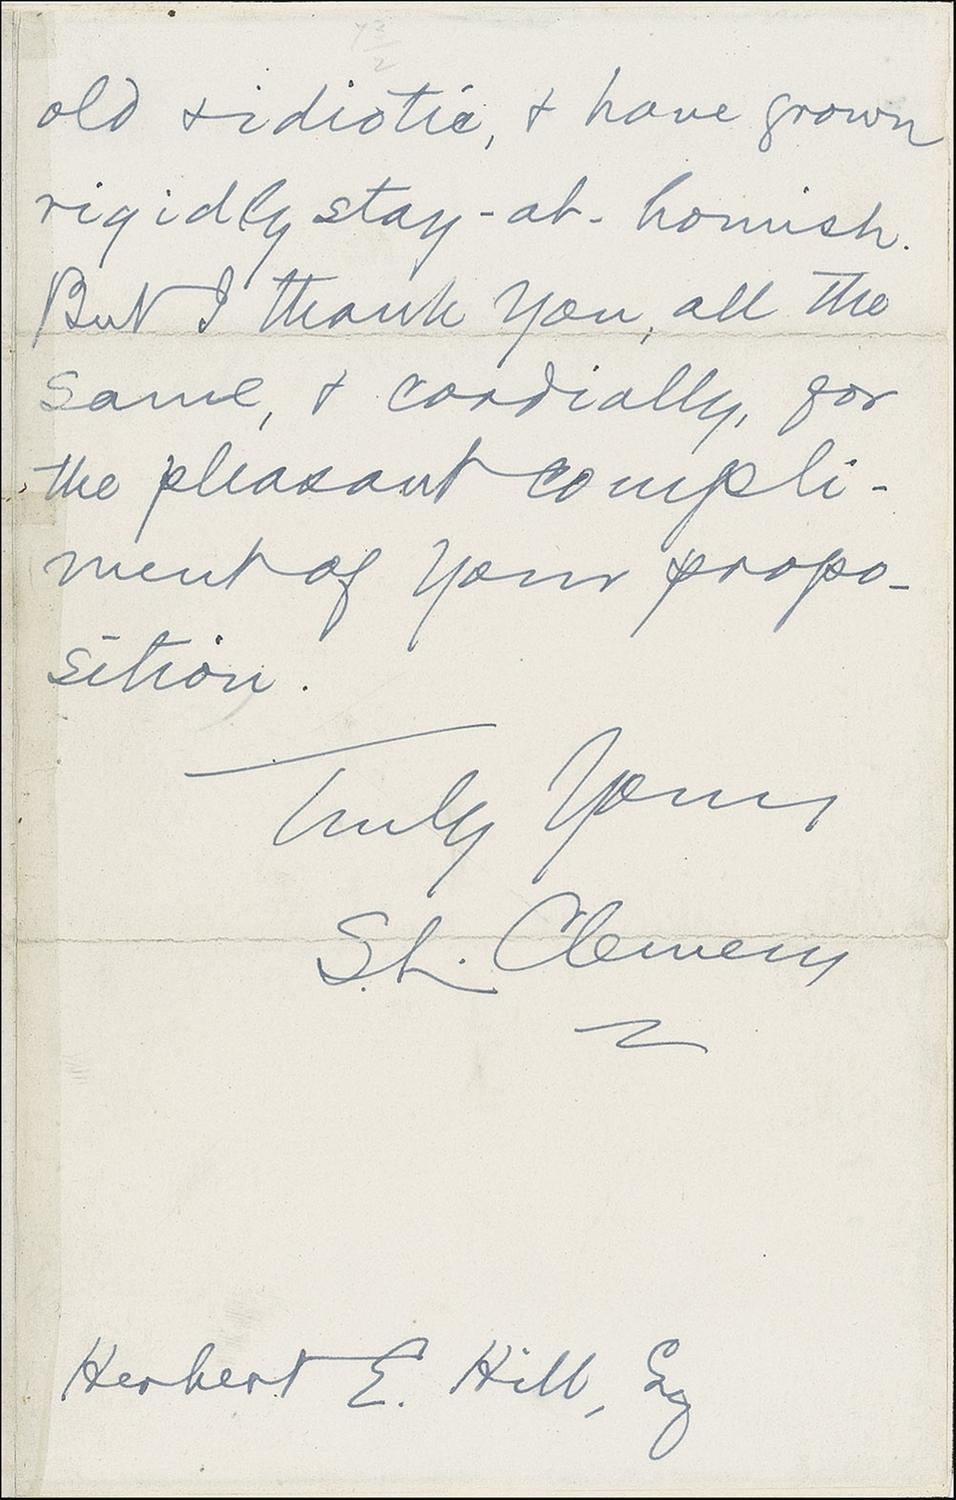 old & idiotic, & have grown
rigidly stay-at-homish.
But I thank you, all the
same, & cordially, for
the pleasant compli-
ment of your propo-
sition.
Truly Yours
S.L. Clemens
Herbert E. Hill, Esq